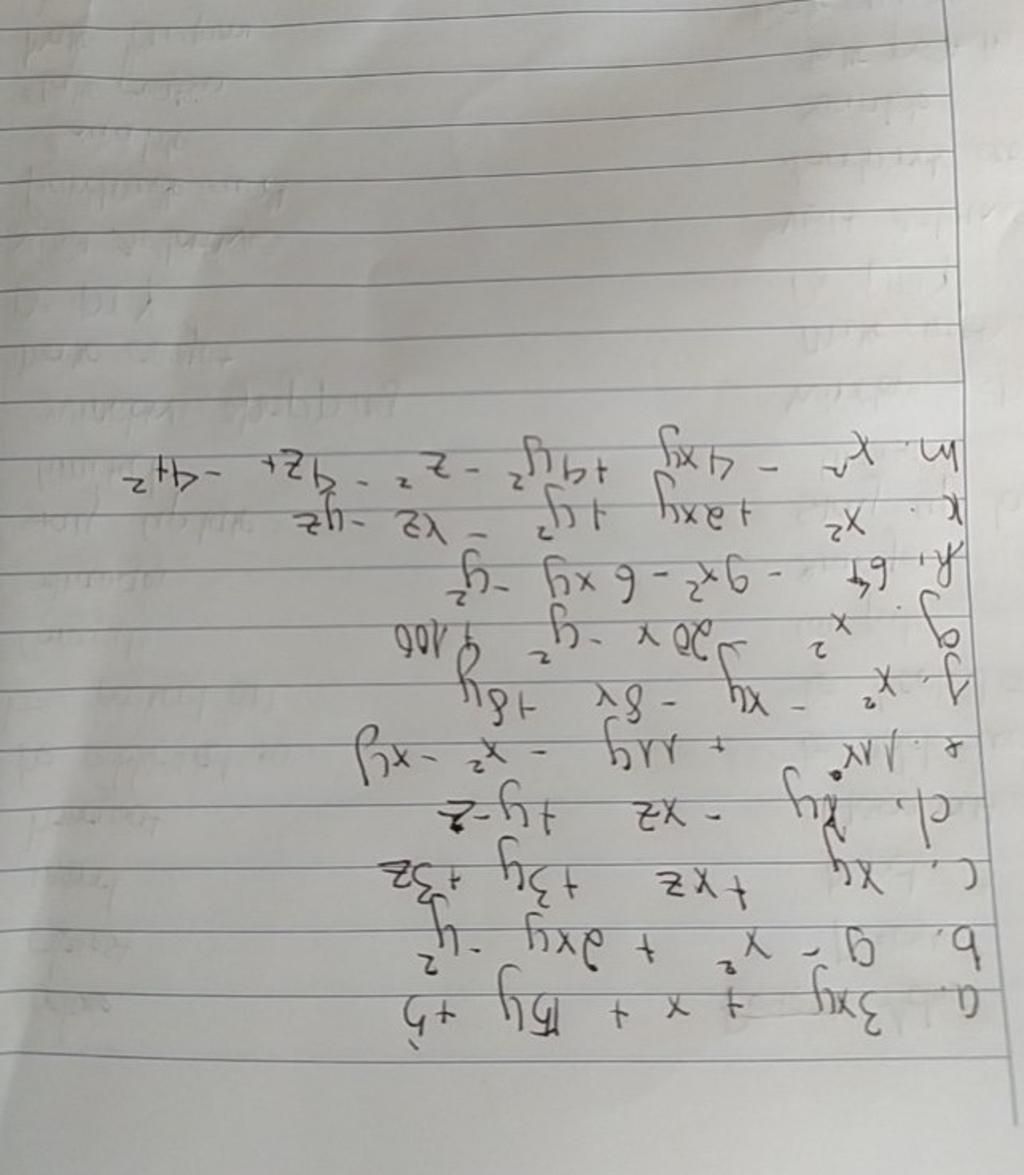 a. 3xy + x + 15y + 5
b. 9 - x² + 2xy - y²
c. xy + xz + 3y + 3z
d. xy - xz + y - z
e. 11x + 11y - x² - xy
f. x² - xy - 8x + 8y
g. x² - 20x - y² + 100
h. 64 - 9x² - 6xy - y²
k. x² + 2xy + y² - xz - yz
m. x² - 4xy + 4y² - z² - 4zt - 4t²